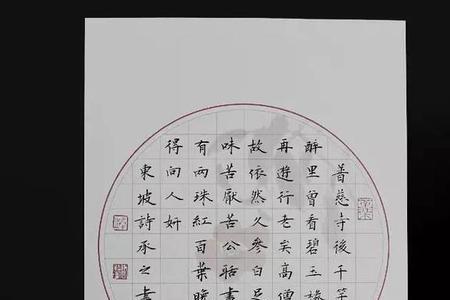 普慈寺後千竿
醉里曾看碧玉椽
再遊行老矣高僧
故依然久參白足
味苦厭苦公聒晝
有兩株紅百葉晚
得向人妍
東坡詩承之書